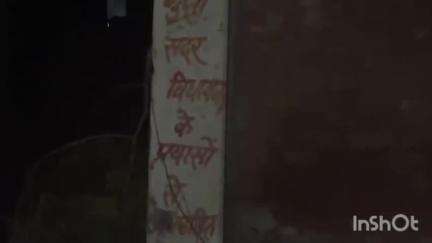 सदर
विधायक
के
प्रयासों
से
InShOt